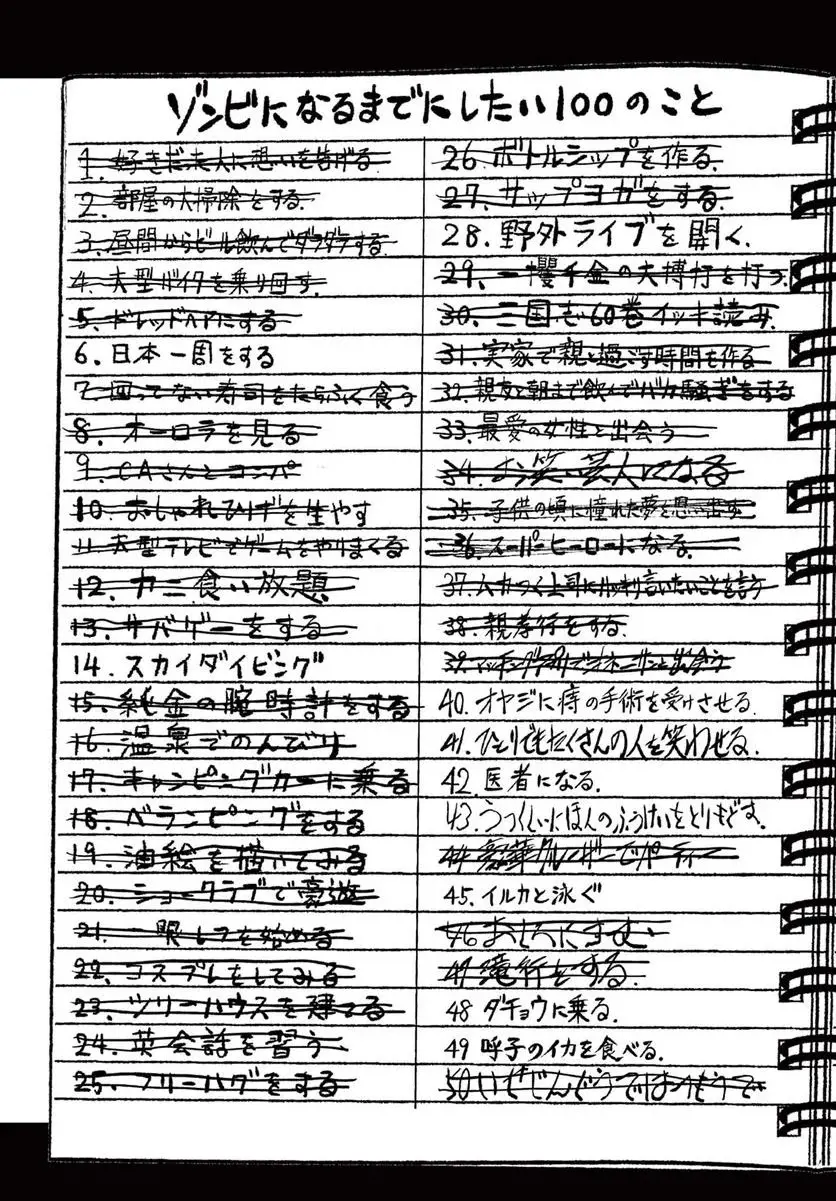 ゾンビになるまでにしたい100のこと
1. 好きだった人に想いを告げる
2. 部屋の大掃除をする.
3. 昼間からビール飲んでダラダラする
4. 大型バイクを乗り回す.
5. ドレッドヘアにする
6. 日本一周をする
7. 回ってない寿司をたらふく食う
8. オーロラを見る
9. CAさんとコンパ
10. おしゃれひげを生やす
11. 大型テレビでゲームをやりまくる
12. カニ食い放題
13. サバゲーをする
14. スカイダイビング
15. 純金の腕時計をする
16. 温泉でのんびり
17. キャンピングカーに乗る
18. ベランピングをする
19. 油絵を描いてみる
20. ショークラブで豪遊
21. 一眼レフを始める
22. コスプレをしてみる
23. ツリーハウスを建てる
24. 英会話を習う
25. フリーハグをする
26. ボトルシップを作る.
27. サップヨガをする.
28. 野外ライブを開く.
29. 一攫千金の大博打を打つ
30. 三国志60巻イッキ読み
31. 実家で親と過ごす時間を作る
32. 親友と朝まで飲んでバカ騒ぎをする
33. 最愛の女性と出会う
34. お笑い芸人になる
35. 子供の頃に憧れた夢を思い出す
36. スーパーヒーローになる.
37. ムカつく上司にハッキリ言いたいことを言う
38. 親孝行をする.
39.
40. オヤジに痔の手術を受けさせる.
41. ひとりでもたくさんの人を笑わせる.
42. 医者になる.
43. うつくしいにほんのふうけいをとりもどす.
44. 豪華クルーザーでパーティー
45. イルカと泳ぐ
46
47. 滝行をする.
48 ダチョウに乗る.
49 呼子のイカを食べる.
50